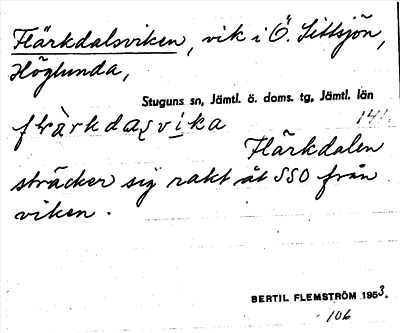 Flärkdalsviken, vik i Ö. Sittsjön,
Höglunda,
Stuguns sn, Jämtl. ö. doms. tg, Jämtl. län
141.
Flärkdalen
sträcker sig rakt åt SSO från
viken.
BERTIL FLEMSTRÖM 1953.
106